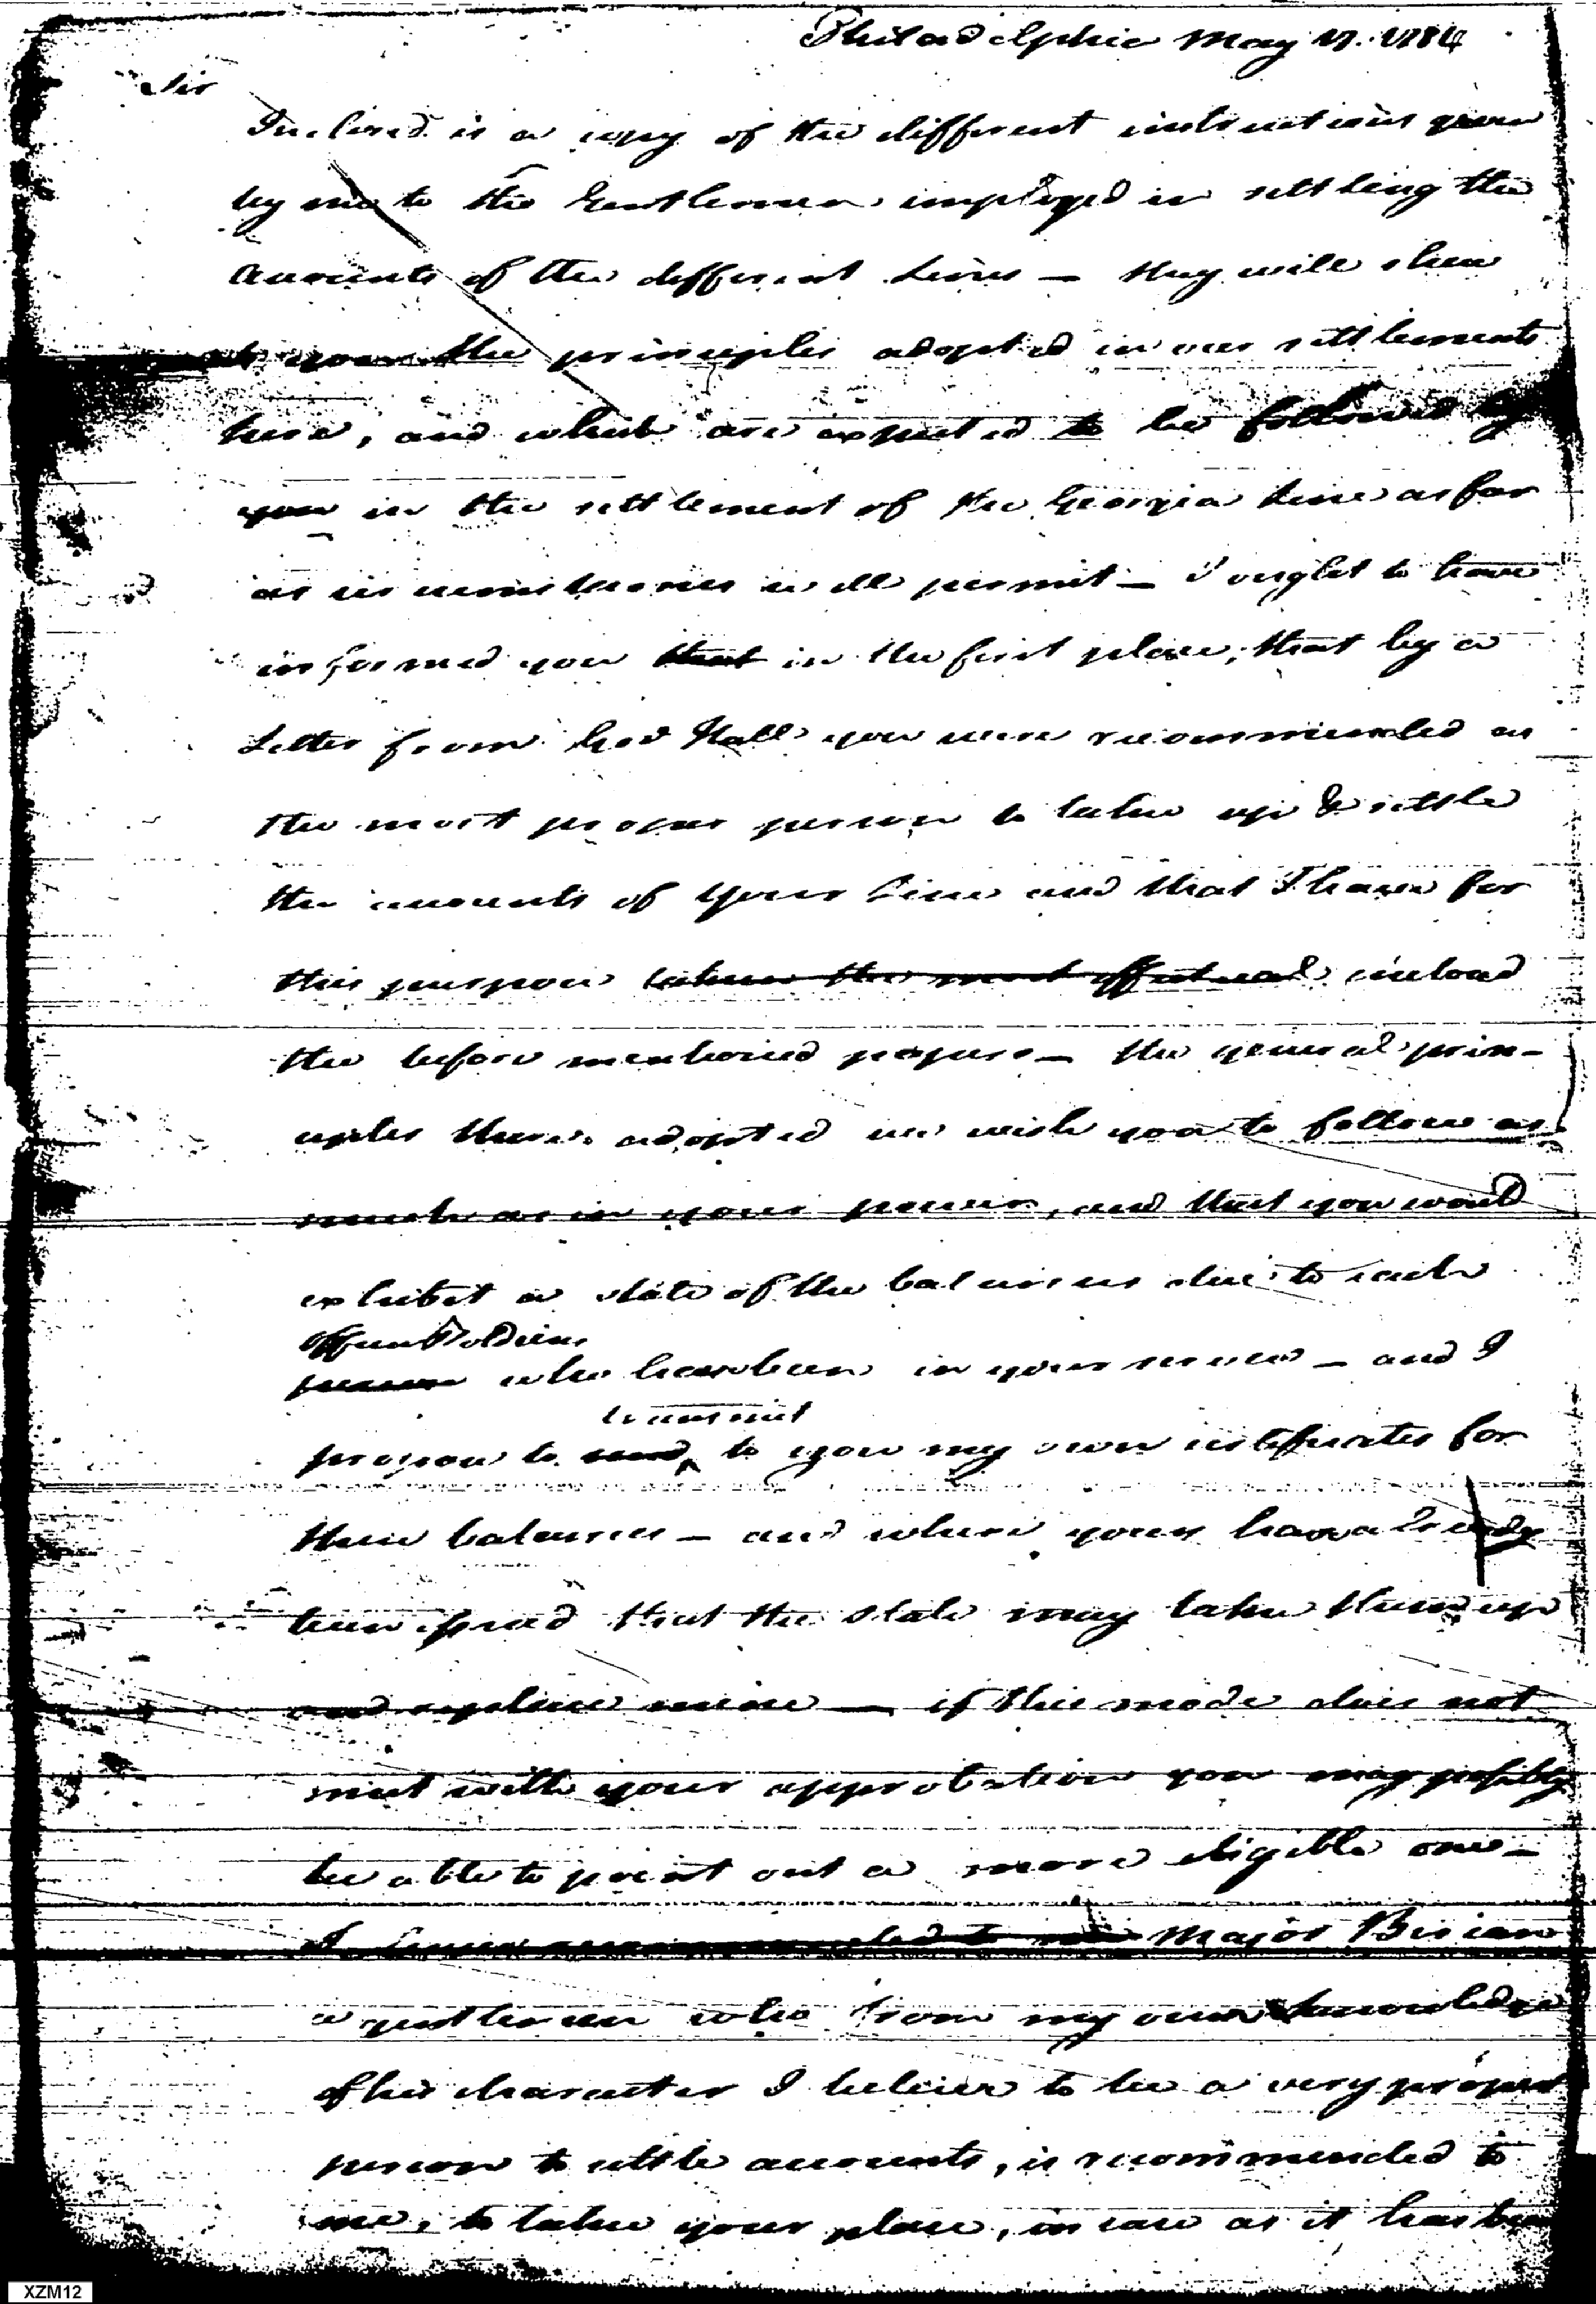 Philadelphia May 17. 1784
Sir
Inclosed is a copy of the different instructions given
by me to the Gentlemen employed in settling the
accounts of the different Lines — they will shew
to you the principles adopted in our settlements
here, and which are expected to be followed by
you in the settlement of the Georgia Line as far
as circumstances will permit — I ought to have
informed you that in the first place, that by a
Letter from Gov Hall you were recommended as
the most proper person to take up & settle
the accounts of your Line and that I have for
this purpose taken the most effectual inclosed
the before mentioned papers — the general prin-
ciples there adopted we wish you to follow as
much as in your power, and that you would
exhibit a state of the balances due to each
officer & soldier
person who has been in your service — and I
transmit
propose to send to you my own certificates for
these balances — and where yours have already
been issued that the state may take them up
and replace mine — if this mode does not
meet with your approbation you may possibly
be able to point out a more eligible one —
I have recommended to me Major Berien
a gentleman who from my own knowledge
of his character I believe to be a very proper
person to settle accounts, is recommended to
me, to take your place, in case as it has been
XZM12